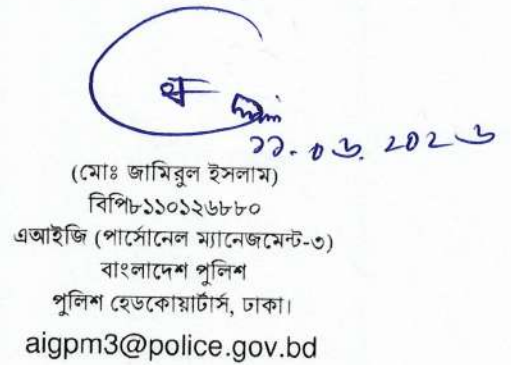 ১১.০৬.২০২৬
(মোঃ জামিরুল ইসলাম)
বিপি৮১১০১২৬৮৮০
এআইজি (পার্সোনেল ম্যানেজমেন্ট-৩)
বাংলাদেশ পুলিশ
পুলিশ হেডকোয়ার্টার্স, ঢাকা।
aigpm3@police.gov.bd